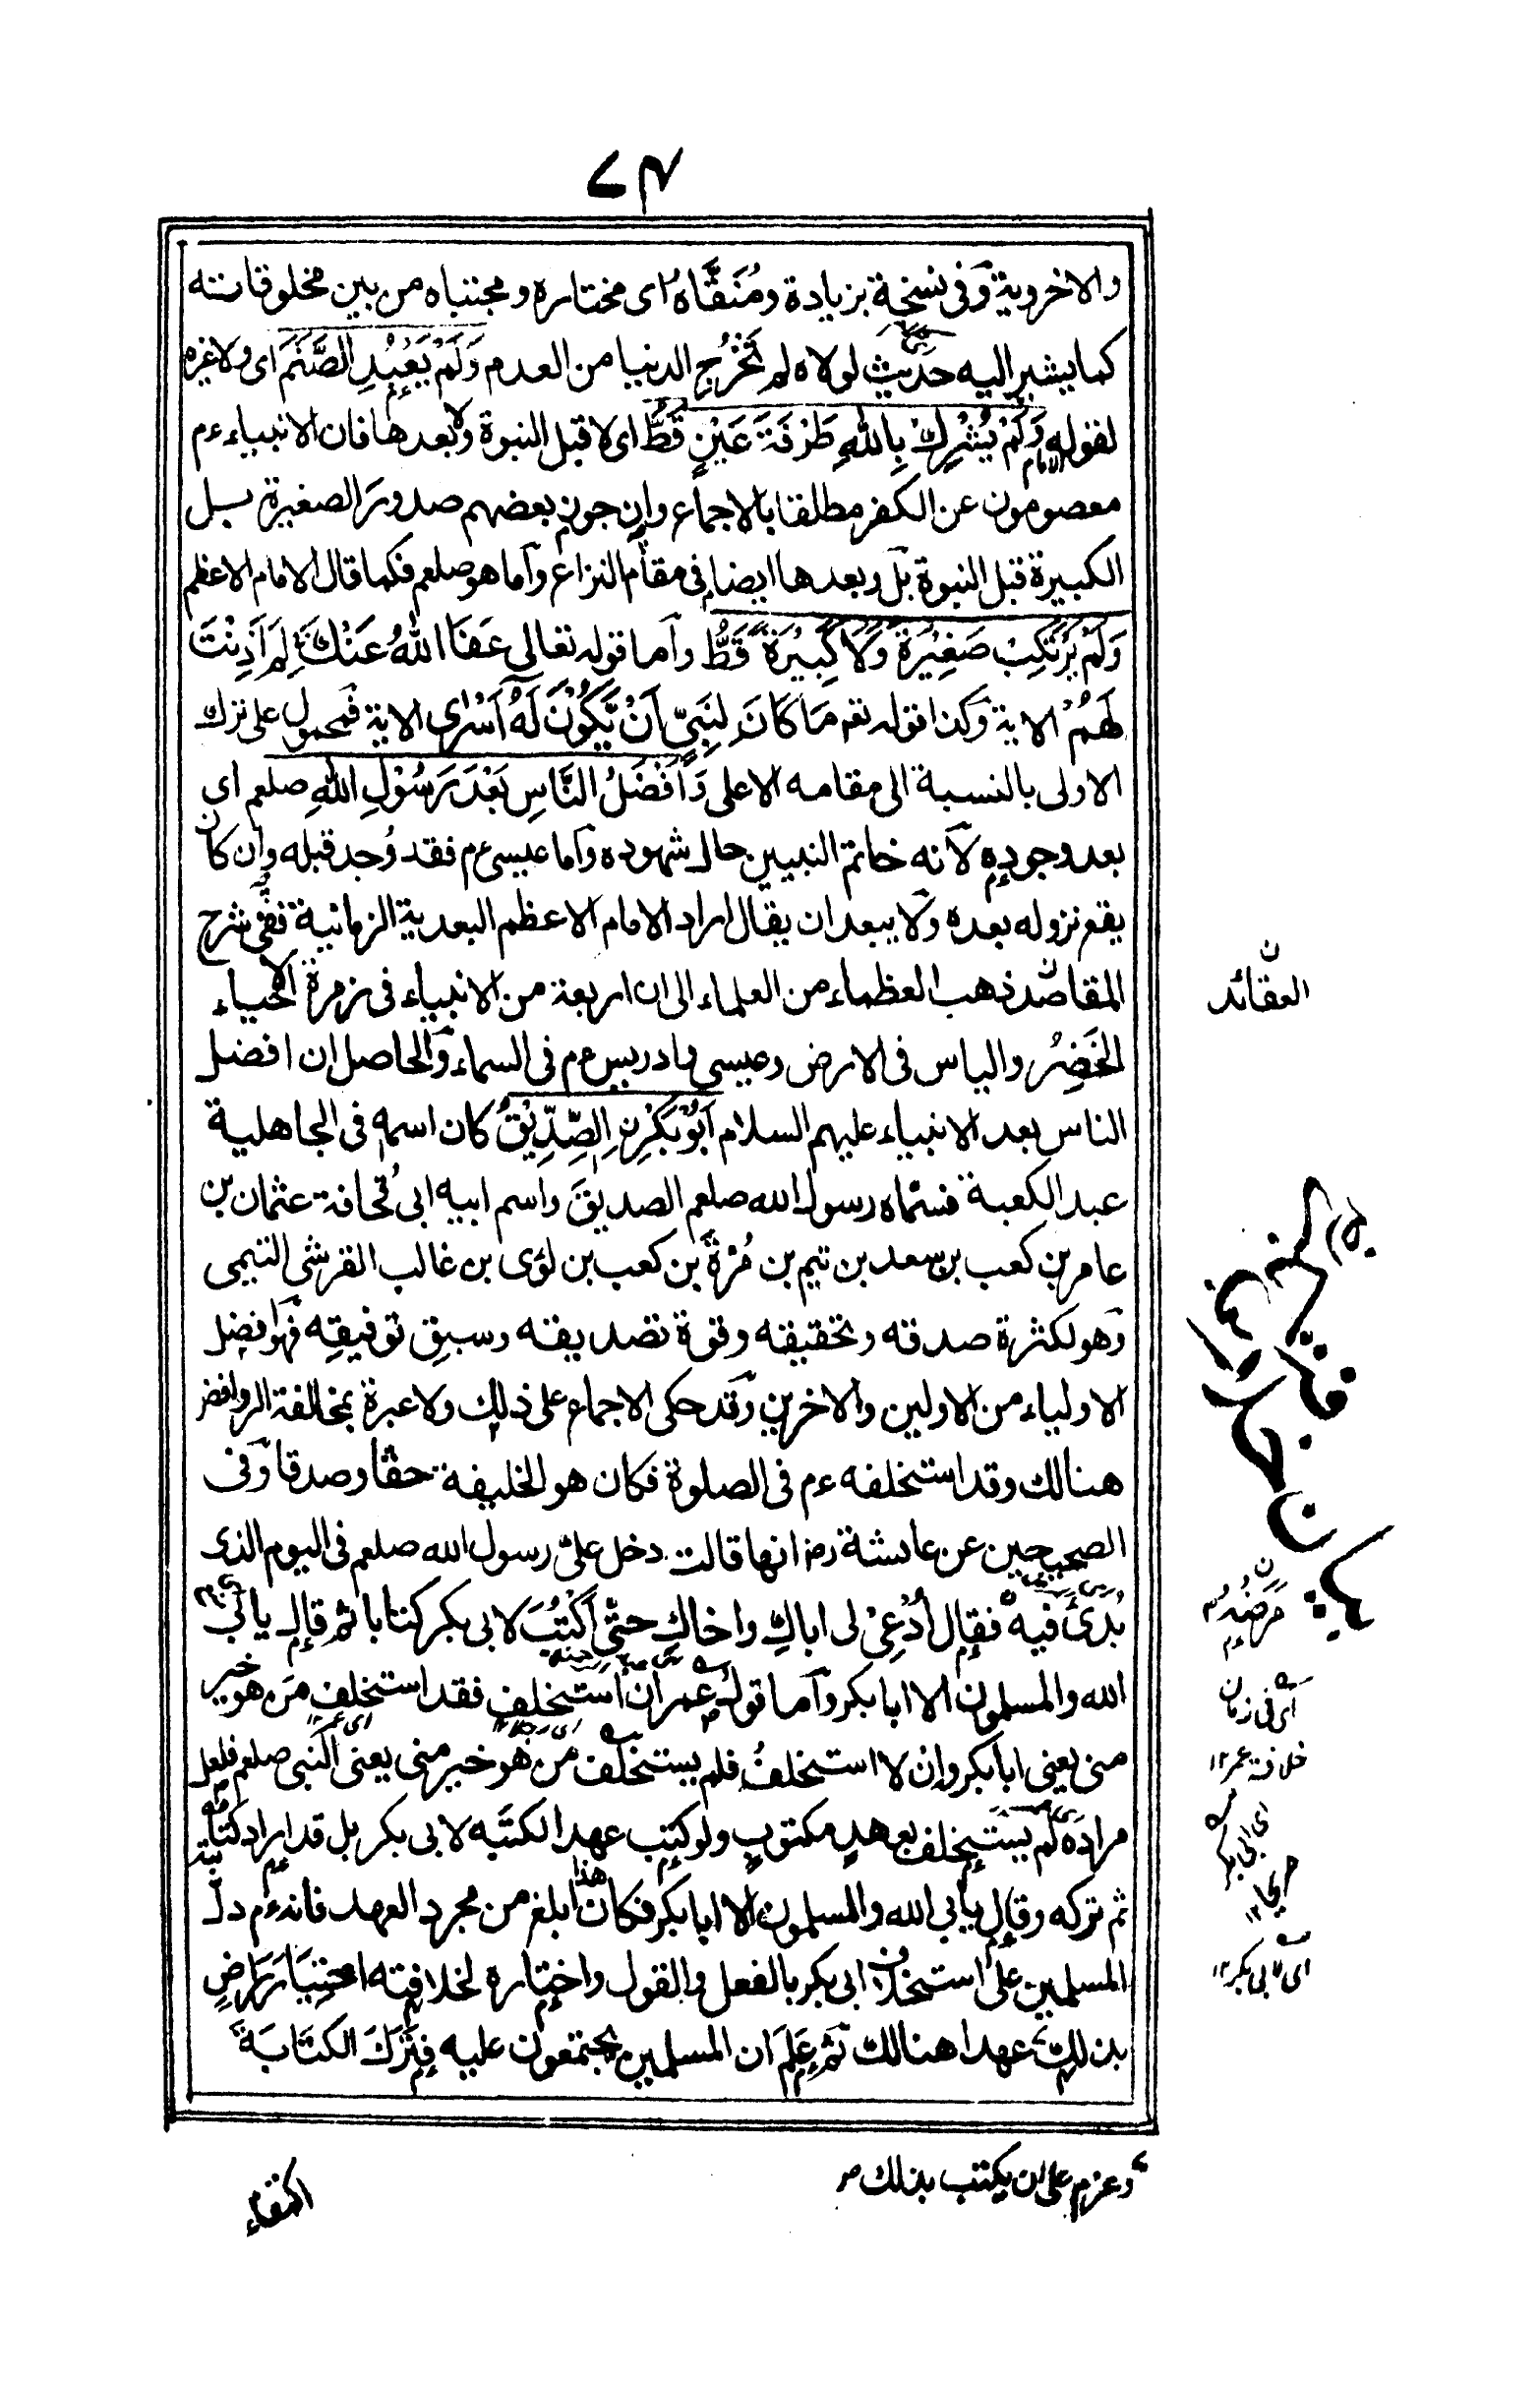 ٧٣
والاخروية وفى نسخة بزيادة ومُنَقَّاهُ اى مختاره ومجتباه من بين مخلوقاته
كما يشير اليه حديث لولاه لم تَخْرُجِ الدنيا من العدم وَلَمْ يَعْبُدِ الصَّنَمَ اى ولا غيره
لقوله وَلَمْ يُشْرِكْ بِاللّٰهِ طَرْفَةَ عَيْنٍ قَطُّ اى لا قبل النبوة ولا بعدها فان الانبياء ءم
معصومون عن الكفر مطلقا بالاجماع وان جوز بعضهم صدور الصغيرة بل
الكبيرة قبل النبوة بل وبعدها ايضا فى مقام النزاع وآما هو صلعم فكما قال الامام الاعظم
وَلَمْ يَرْتَكِبْ صَغِيْرَةً وَلَا كَبِيْرَةً قَطُّ وآما قوله تعالى عَفَا اللّٰهُ عَنْكَ لِمَ اَذِنْتَ
لَهُمْ الاية وكذا قوله تعم مَا كَانَ لِنَبِيٍّ اَنْ يَّكُوْنَ لَهٗ اَسْرٰى الاية فمحمول على ترك
الاولى بالنسبة الى مقامه الاعلى وَاَفْضَلُ النَّاسِ بَعْدَ رَسُوْلِ اللّٰهِ صلعم اى
بعد وجوده لآنه خاتم النبيين حال شهوده وآما عيسى ءم فقد وُجد قبله وان كان
يقع نزوله بعده ولا يبعد ان يقال اراد الامام الاعظم البعدية الزمانية ففى شرح
المقاصد ذهب العظماء من العلماء الى ان اربعة من الانبياء فى زمرة الاحياء
الخَضِرُ والياس فى الارض وعيسى وادريس ءم فى السماء وآلحاصل ان افضل
الناس بعد الانبياء عليهم السلام اَبُوْ بَكْرِنِ الصِّدِّيْقُ كان اسمه فى الجاهلية
عبد الكعبة فسمّاه رسول الله صلعم الصديق واسم ابيه ابى قُحافة عثمان بن
عامر بن كعب بن سعد بن تيم بن مُرّة بن كعب بن لؤى بن غالب القرشى التيمى
وهو لكثرة صدقه وتحقيقه وقوة تصديقه وسبق توفيقه فهو افضل
الاولياء من الاولين والاخرين وقد حكى الاجماع على ذلك ولا عبرة بمخالفة الروافض
هنالك وقد استخلفه ءم فى الصلوة فكان هو الخليفة حقا وصدقا وفى
الصحيحين عن عايشة رض انها قالت دخل علىّ رسول الله صلعم فى اليوم الذى
بُدئ فيه فقال اُدْعِىْ لى اباكِ واخاكِ حتّى اَكْتُبَ لابى بكر كتابا ثم قال يابى
الله والمسلمون الا ابا بكر وآما قول عمر ان استخلف فقد استخلف من هو خير
منى يعنى ابا بكر وان لا استخلفُ فلم يستخلف من هو خير منى يعنى النبى صلعم فلعل
مراده لم يستخلف بعهدٍ مكتوبٍ ولو كتب عهدا لكتبه لابى بكر بل قد اراد كتابته
ثم تركه وقال يأبى الله والمسلمون الا ابا بكر فكان هذا ابلغ من مجرد العهد فانه ءم دلّ
المسلمين على استخلاف ابى بكر بالفعل والقول واختاره لخلافته اختيارَ رَاضٍ
بذلك عهدا هنالك ثم عَلِمَ ان المسلمين يجتمعون عليه فتَرَكَ الكتَابَةَ
ن
العقائد
ن
مرضه
اى فى زمان
خلافة عمر ١٢
اى ابى بكر
صريحا ١٢
اى لابى بكر ١٢
وعزم على ان يكتب بذلك ص
اكتفاء